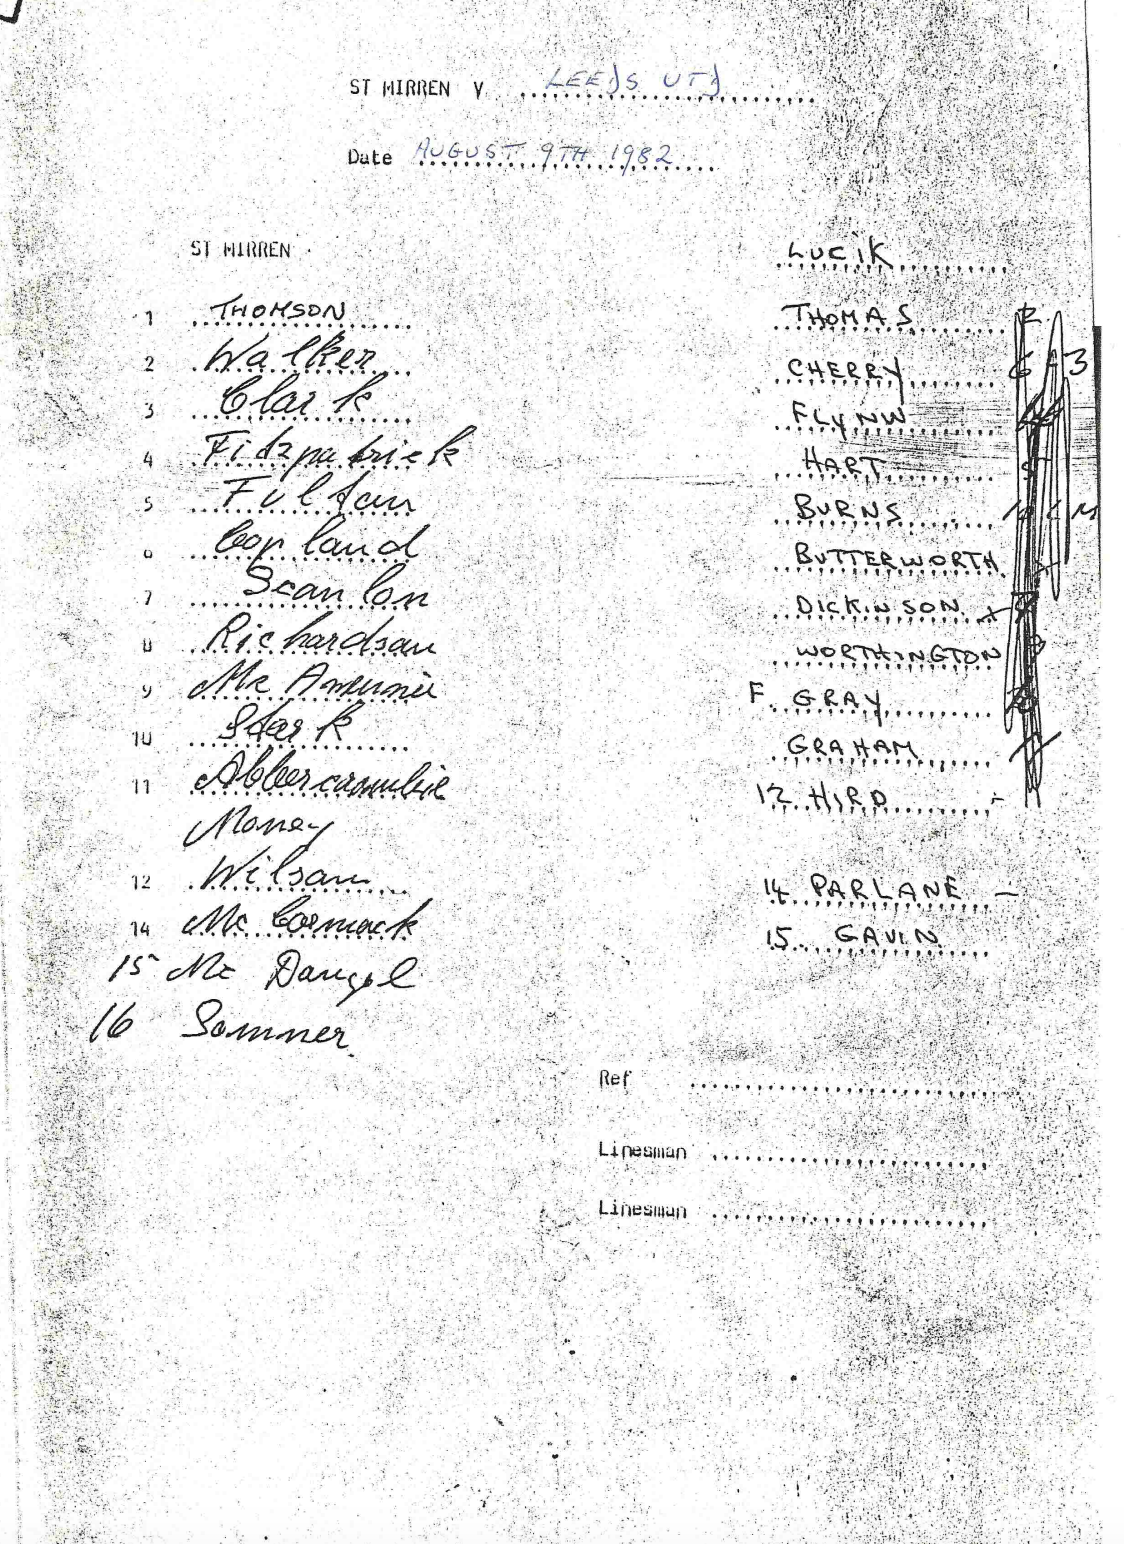 ST MIRREN V LEEDS UTD
Date AUGUST 9TH 1982
ST MIRREN
LUCIK
1 THOMSON
THOMAS
2 Walker
CHERRY
3 Clark
FLYNN
4 Fitzpatrick
HART
5 Fulton
BURNS
6 Copland
BUTTERWORTH
7 Scanlon
DICKINSON
8 Richardson
WORTHINGTON
9 Mc Avennie
F. GRAY
10 Stark
GRAHAM
11 Abbercrombie
12 HIRD
Money
12 Wilson
14 PARLANE
14 Mc Cormack
15 GAVIN
15 Mc Dougol
16 Somner
Ref
Linesman
Linesman